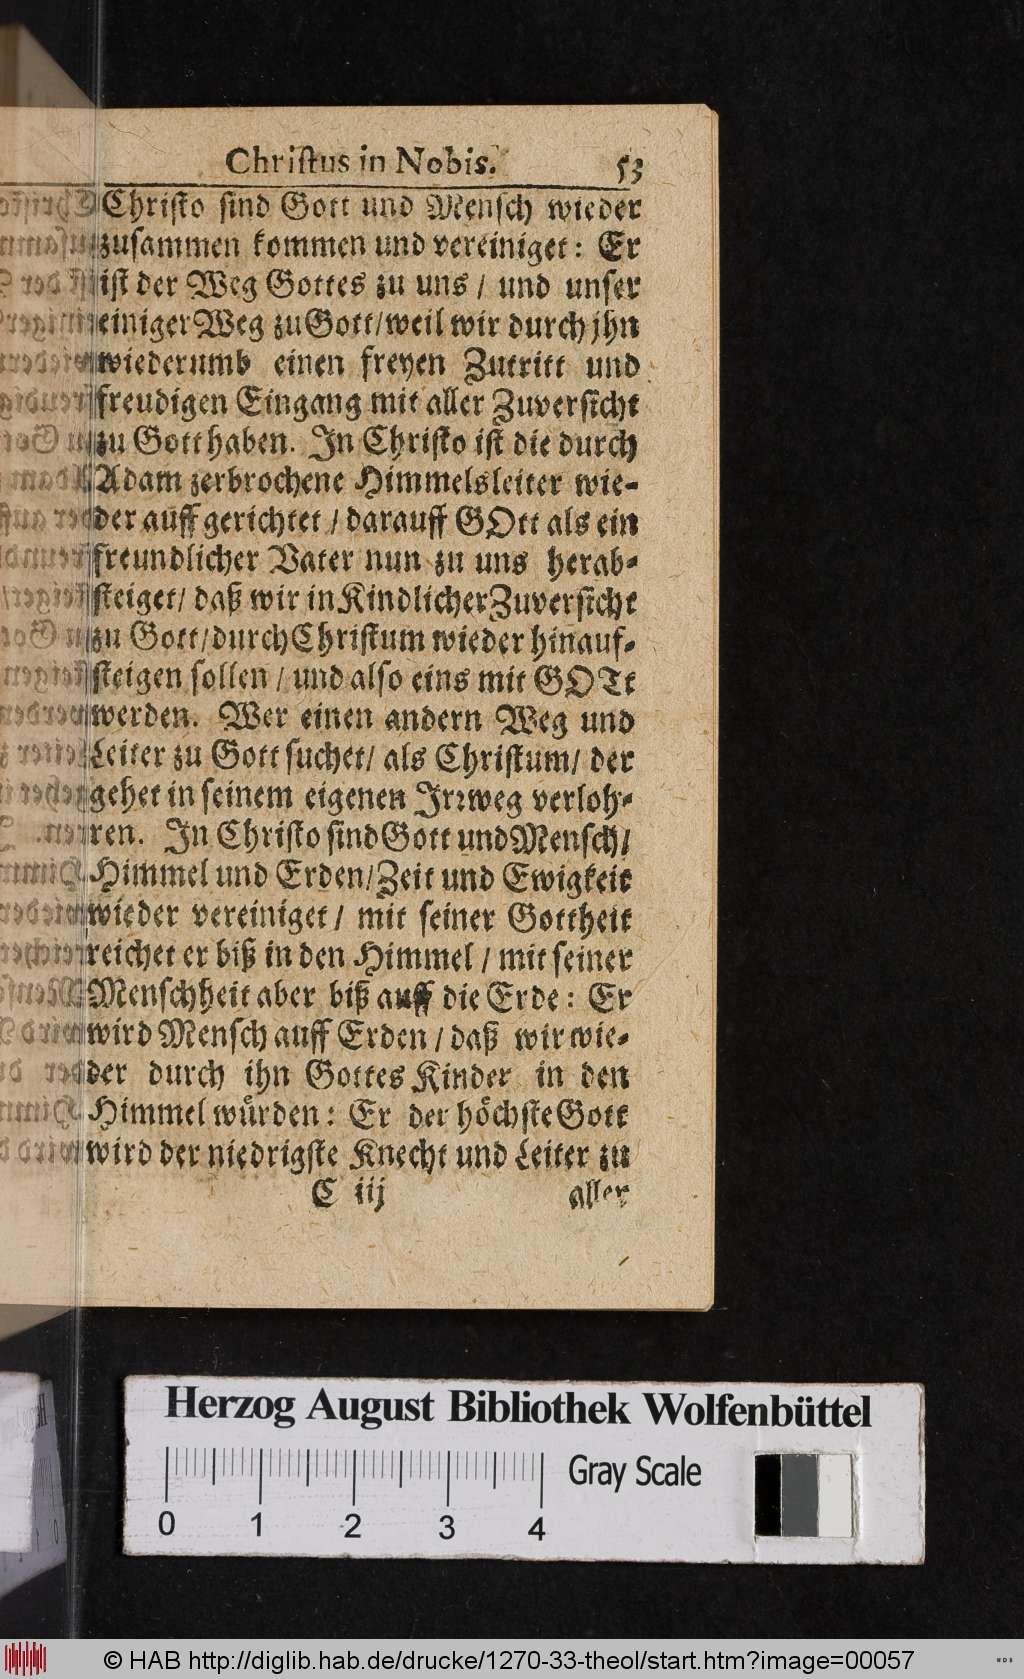 Christus in Nobis. 53
Christo sind Gott und Mensch wieder
zusammen kommen und vereiniget: Er
ist der Weg Gottes zu uns / und unser
einiger Weg zu Gott/weil wir durch jhn
wiederumb einen freyen Zutritt und
freudigen Eingang mit aller Zuversicht
zu Gott haben. In Christo ist die durch
Adam zerbrochene Himmelsleiter wie-
der auff gerichtet / darauff GOtt als ein
freundlicher Vater nun zu uns herab-
steiget/ daß wir in Kindlicher Zuversicht
zu Gott/durch Christum wieder hinauf-
steigen sollen / und also eins mit GOTt
werden. Wer einen andern Weg und
Leiter zu Gott suchet/ als Christum/ der
gehet in seinem eigenen Irrweg verloh-
ren. In Christo sind Gott und Mensch/
Himmel und Erden/Zeit und Ewigkeit
wieder vereiniget / mit seiner Gottheit
reichet er biß in den Himmel / mit seiner
Menschheit aber biß auff die Erde: Er
wird Mensch auff Erden / daß wir wie-
der durch ihn Gottes Kinder in den
Himmel würden: Er der höchste Gott
wird der niedrigste Knecht und Leiter zu
C iij aller
Herzog August Bibliothek Wolfenbüttel
Gray Scale
0 1 2 3 4
© HAB http://diglib.hab.de/drucke/1270-33-theol/start.htm?image=00057